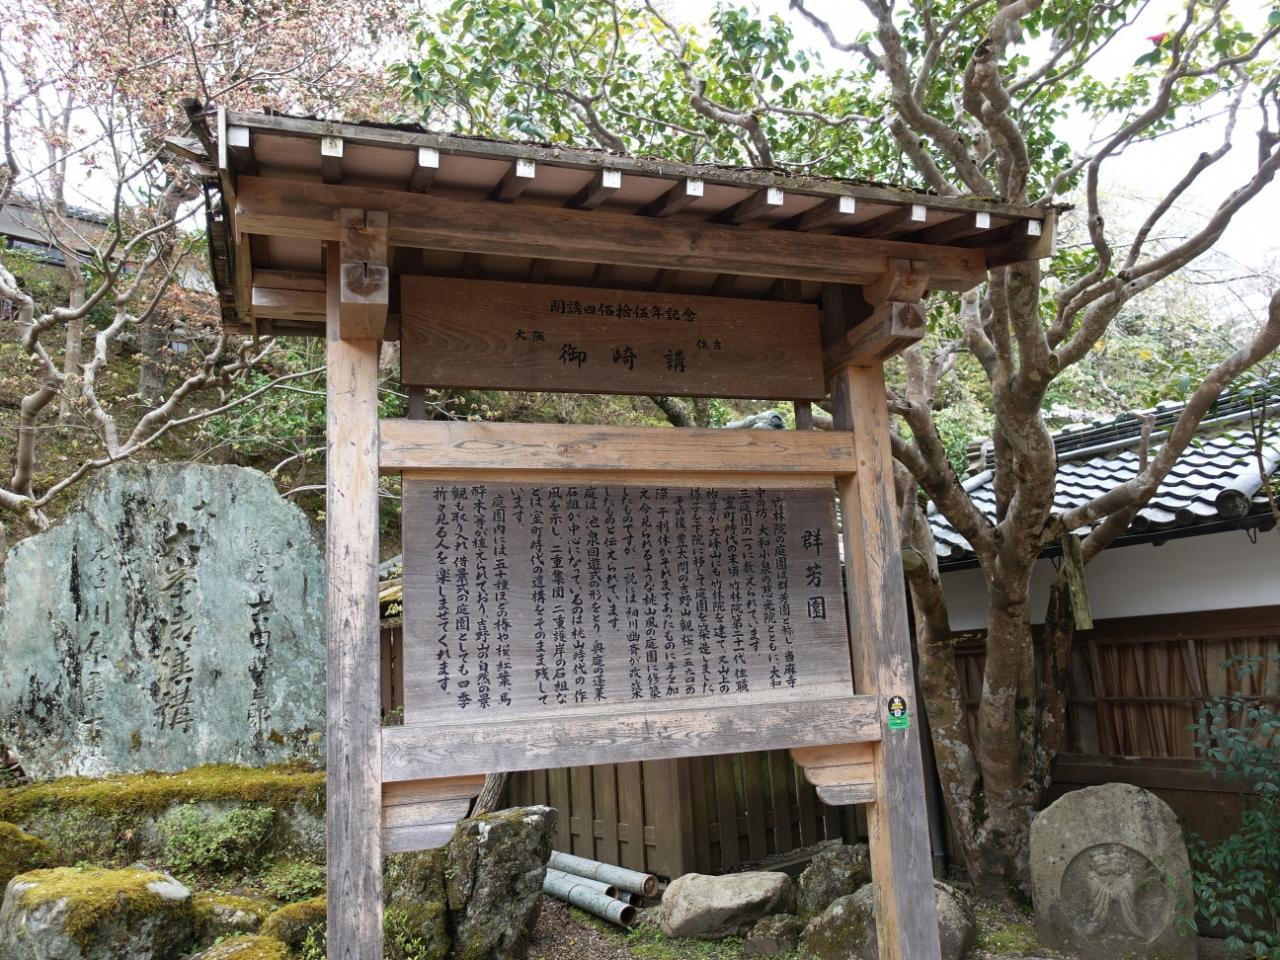 開講四佰拾伍年記念
大阪
住吉
御崎講
群芳園
竹林院の庭園は群芳園と称し、当麻寺
中之坊、大和小泉の慈光院とともに、大和
三庭園の一つに数えられています。
室町時代の末頃、竹林院第二十一代住職
祐尊が大峰山にも竹林院を建て、又山上の
様子を下院に移して庭園を築造しました。
その後、豊太閤の吉野山観桜(一五九四)の
際、千利休がそれまであったものに手を加
え、今見られるような桃山風の庭園に修築
したものですが、一説には細川幽斎が改築
したものと伝えられています。
庭は、池泉回遊式の形をとり、奥庭の蓬莱
石組が中心になっているのは桃山時代の作
風を示し、二重集団、二重護岸の石組な
どは、室町時代の遺構をそのまま残して
います。
庭園内には五十種ほどの椿や桜、紅葉、馬
酔木等が植えられており、吉野山の自然の景
観も取り入れ、借景式の庭園としても四季
折々見る人を楽しませてくれます。